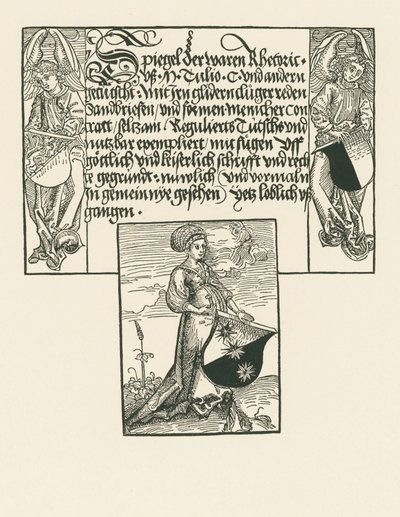 Spiegel der waren Rhetoric ·
vß · M · Tulio · C · vnd andern
getütscht : Mit jrn glidern clůger reden
Sandbriefen / vnd formen · menicher con
tract / seltzam / Regulierts Tütschs vnd
nutzbar exempliert / mit fůgen vff
göttlich vnd keiserlich schrifft vnd rech
te gegründt · nuwlich (vnd vormaln
In gemein nye gesehen) yetz loblich vß
gangen ·